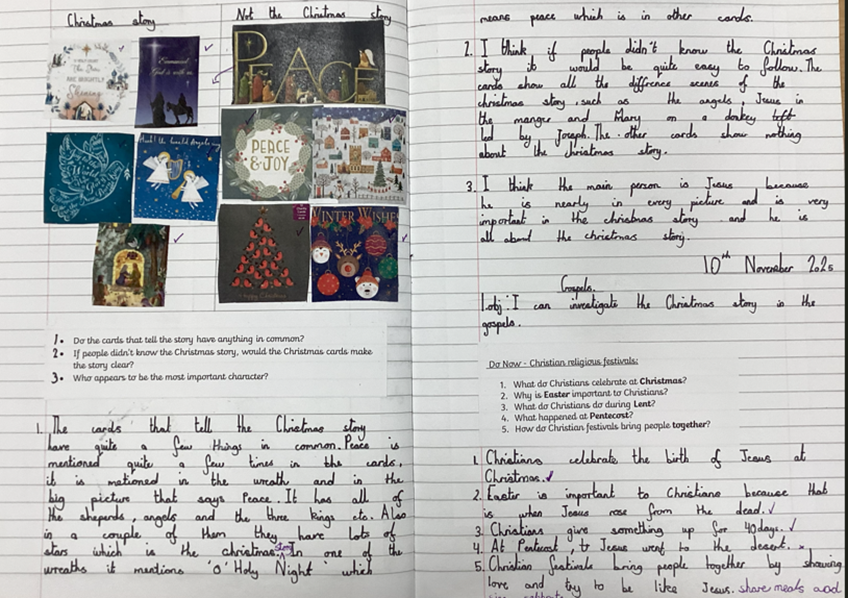 Christmas story
Not the Christmas story
Shining
Emmanuel
God is with us
PEACE
PEACE
& JOY
Hark! the herald Angels sing
WINTER WISHES
1. Do the cards that tell the story have anything in common?
2. If people didn't know the Christmas story, would the Christmas cards make
the story clear?
3. Who appears to be the most important character?
1. The cards that tell the Christmas story
have quite a few things in common. Peace is
mentioned quite a few times in the cards,
it is metioned in the wreath and in the
big picture that says Peace. It has all of
the sheperds, angels and the three kings etc. Also
in a couple of them they have lots of
stars which is the christmas story In one of the
wreaths it mentions 'O' Holy Night' which
means peace which is in other cards.
2. I think if people didn't know the Christmas
story it would be quite easy to follow. The
cards show all the diffrence scenes of the
christmas story, such as the angels, Jesus in
the manger and Mary on a donkey
led by Joseph. The other cards show nothing
about the christmas story.
3. I think the main person is Jesus because
he is nearly in every picture and is very
important in the christmas story and he is
all about the christmas story.
10th November 2025
Gospels.
L.obj: I can investigate the Christmas story in the
gospels.
Do Now - Christian religious festivals:
1. What do Christians celebrate at Christmas?
2. Why is Easter important to Christians?
3. What do Christians do during Lent?
4. What happened at Pentecost?
5. How do Christian festivals bring people together?
1. Christians celebrate the birth of Jesus at
Christmas.
2. Easter is important to Christians because that
is when Jesus rose from the dead.
3. Christians give something up for 40days.
4. At Pentecost, Jesus went to the desert.
5. Christian festivals bring people together by showing
love and try to be like Jesus. share meals and